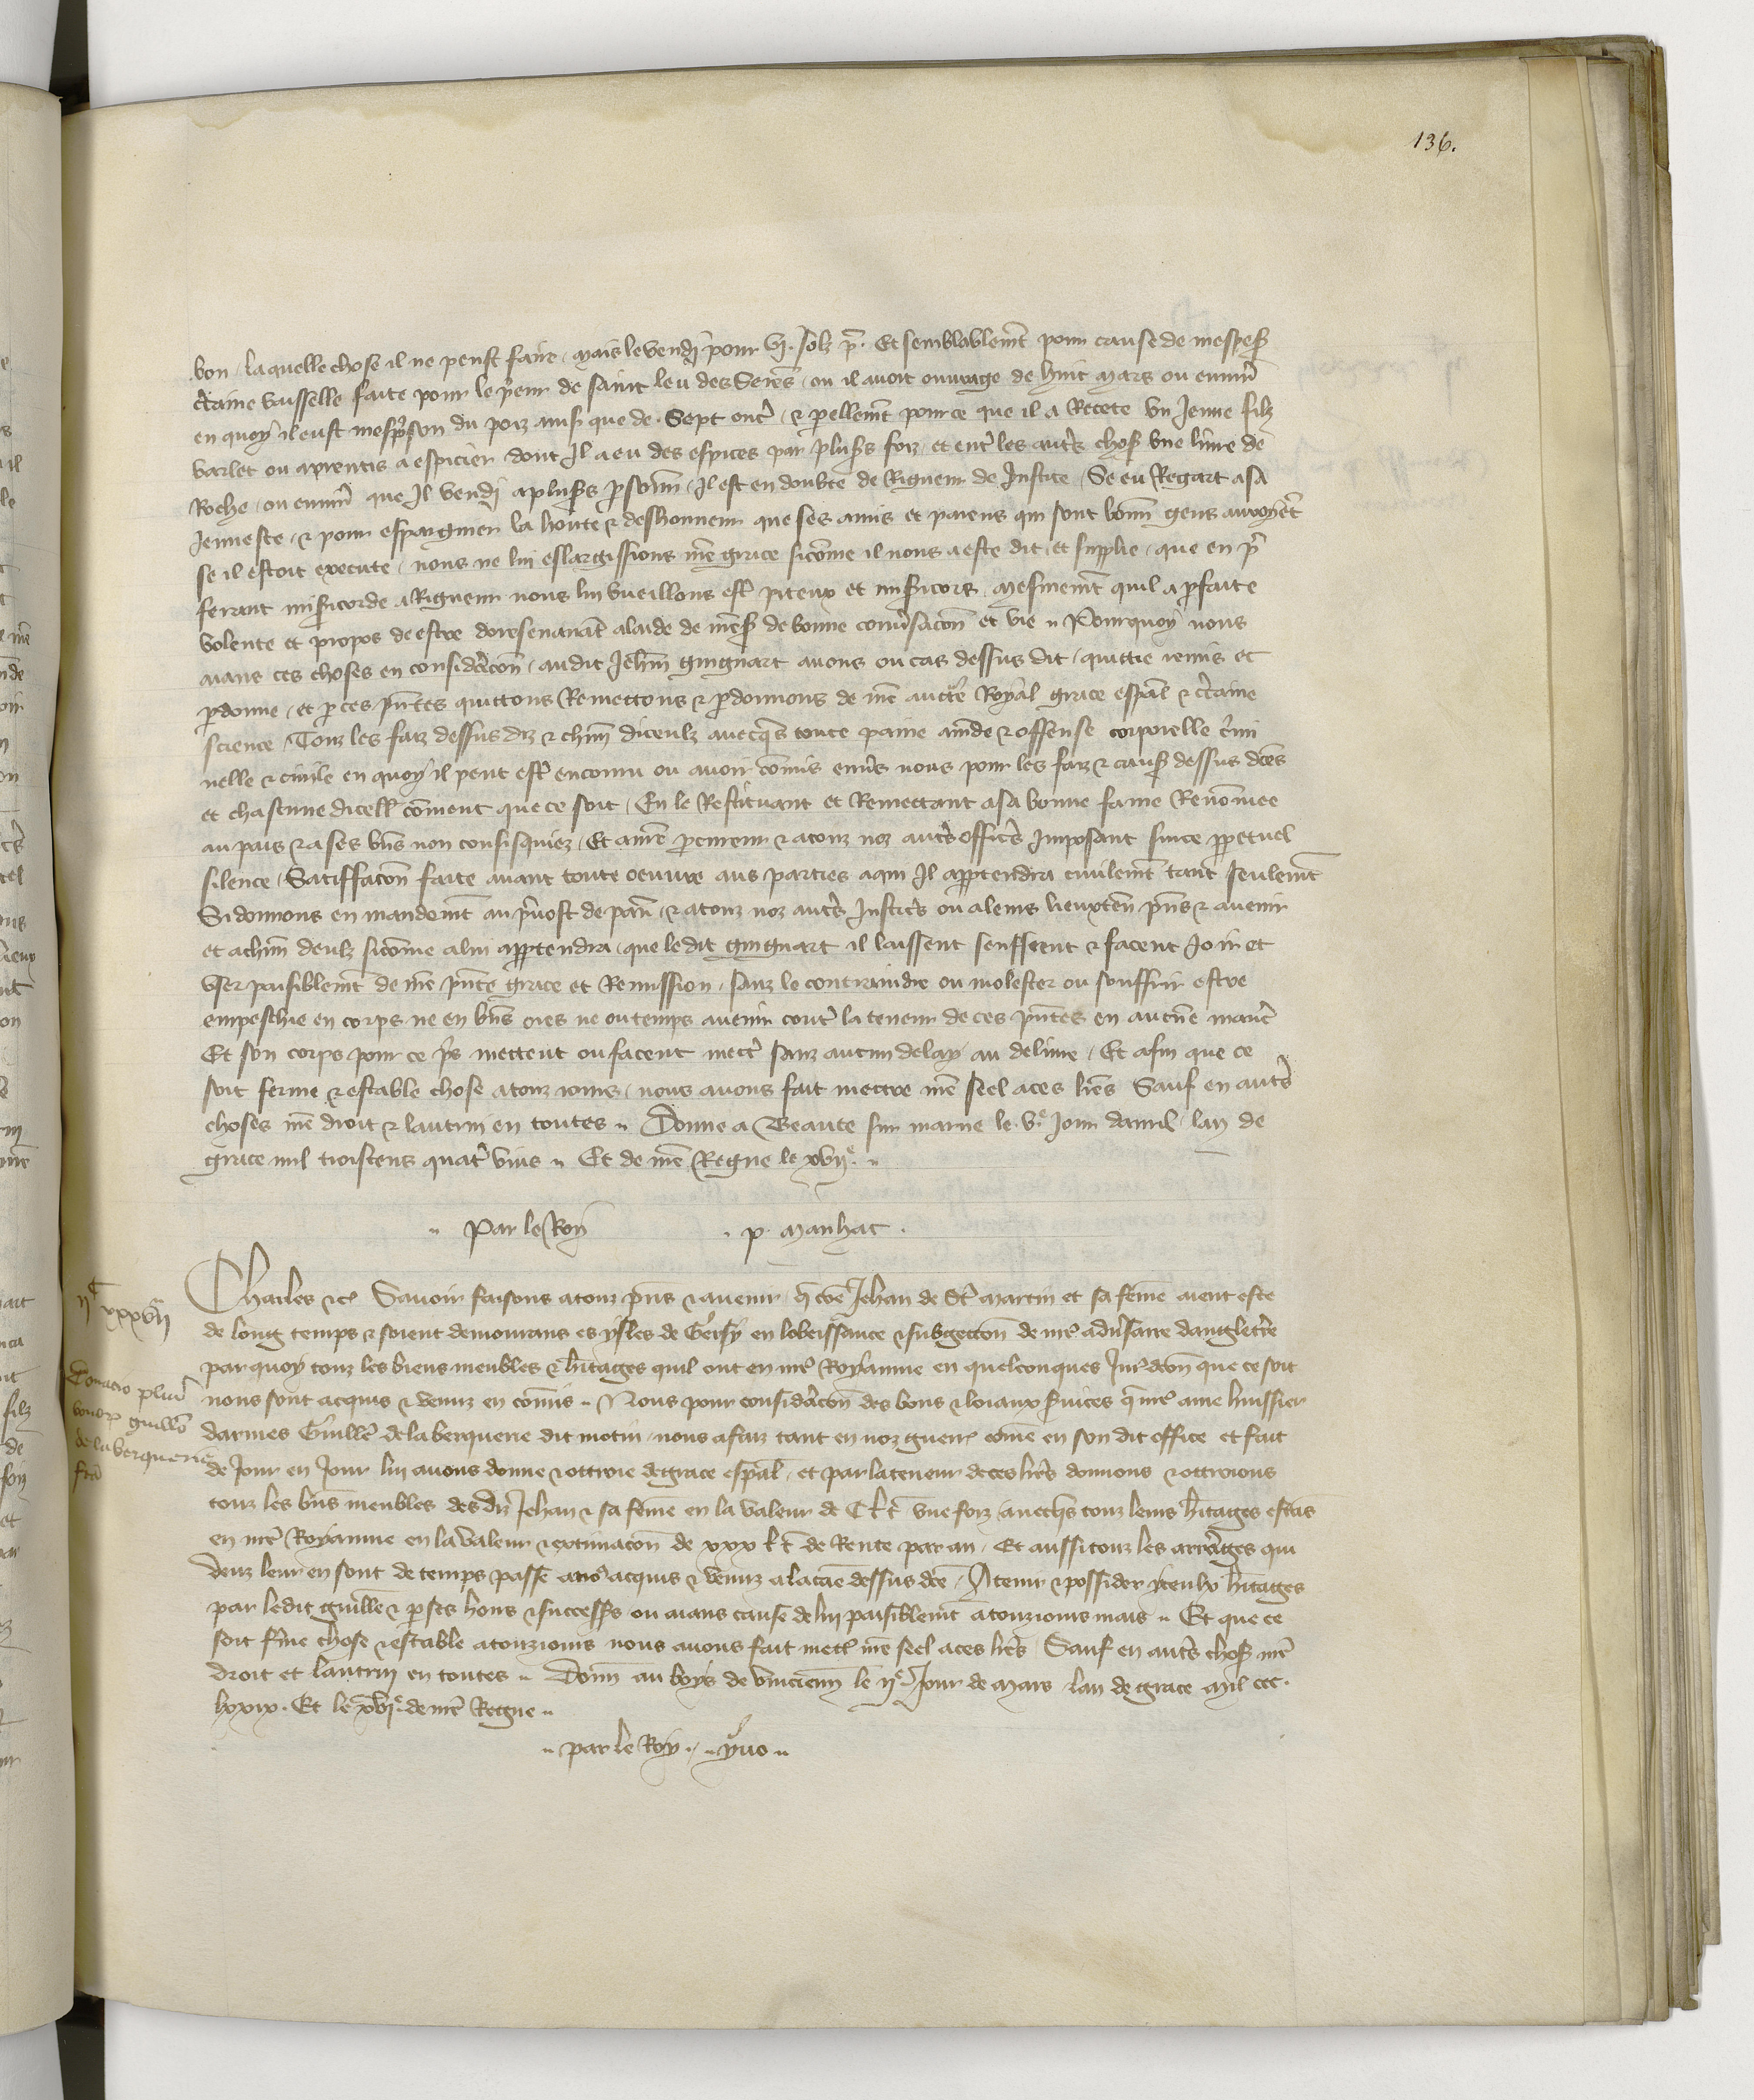 136.
bon / laquelle chose il ne peust faire / mais le vendi pour vj. solz p. Et semblablemt pour cause de mespes
ctaine vaisselle faite pour le peur de saint leu des Serens / ou il avoit ouvrage de huit mars ou environ
en quoy il eust mesproison du poiz ainsi que de sept onc / & pellemt pour ce que il a Recete un Jeune filz
varlet ou aprentis a espicier dont Il a eu des espices par pluss foiz / et entr les autres chos une livre de
Roche / ou environ que Il vendi a pluss psonn / Il est en doubte de Rigueur de Justice / Se eu Regart a sa
Jeunesce / & pour espargnier la honte & deshonneur que ses amis et parens qui sont bonn gens auroient
se il estoit execute / nous ne lui eslargissions nre grace sicome il nous a este dit / et supplie / que en pre
ferant misicorde a Rigueur nous lui vueillons estre piteux et misicors / mesmemt quil a pfaite
volente et propos de estre doresenavant a laide de messes de bonne convsacon et vie Pourquoy nous
aians ces choses en consideracon / audit Jehan Guignart avons ou cas dessus dit / quittie remis et
pdonne / et p ces pntes quittons Remettons & pdonnons de nre aucte Royal grace espal & ctaine
science Touz les faiz dessus diz & chun diceulz avecques toute paine amde & offense corporelle crimi
nelle & civile en quoy il peut estre encouru ou avoir comis envs nous pour les faiz & causes dessus dces
et chascune dicell coment que ce soit / En le Restituant et Remettant a sa bonne fame Renomee
au pais & a ses bns non confisquiez / Et a nre pcureur & a touz noz autres offices Imposant sur ce ppetuel
silence / Satiffacon faite avant toute oeuvre aus parties a qui Il apptendra civilemt tant seulemt
Si donnons en mandemt au pvost de par / & a touz noz autres Justices ou a leurs lieuxten pns & avenir
et a chun deulz sicome a lui apptendra / que ledit Guignart il laissent seuffrent & facent Joir et
user paisiblemt de nre pnte grace et Remission / sanz le contraindre ou molester ou souffrir estre
empeschie en corps ne en bns ores ne ou temps avenir contre la teneur de ces pntes en aucune manie
Et son corps pour ce pis mettent ou facent mectr sanz aucun delay au delivre / Et afin que ce
soit ferme & estable chose a touz jours / nous avons fait mettre nre seel a ces lres Sauf en autres
choses nre droit & lautruy en toutes Donne a Beaute sur marne le ve Jour davril lan de
grace mil troiscens quatre vins Et de nre Regne le xvije
Par le Roy p. Manhac
ijc xxxvij
Charles &c Savoir faisons a touz pns & avenir / q come Jehan de St Martin et sa feme aient este
de long temps & soient demourans es ysles de Gersy en lobeissance & subgeccion de nre advsaire dangleterre
par quoy touz les biens meubles & hitages quil ont en nre Royaume en quelconques Juridcon que ce soit
Donacio plur
bonor guillo
de la berquerie
fca
nous sont acquis & venuz en comis Nous pour consideracon des bons & loiaux svices q nre ame huissier
darmes Guille de la berquerie dit motin nous a faiz tant en noz guerr come en son dit office et fait
de Jour en Jour lui avons donne & ottroie de grace espal / et par la teneur de ces lres donnons & ottroions
touz les bns meubles des diz Jehan & sa feme en la valeur de C l t une foiz / avecqs touz leurs hitages estans
en nre Royaume en la valeur & extimacon de xxx l t de Rente par an / Et aussi touz les arrerages qui
deuz leur en sont de temps passe a nos acquis & venuz a la cae dessus dce / A tenir & possider yceulx hitages
par ledit guille & p ses hoirs & successs ou aians cause de lui paisiblemt a touzjours mais Et que ce
soit fme chose & estable a touzjours nous avons fait mett nre seel a ces lres / Sauf en autres chos nre
droit et lautruy en toutes Donn au boys de vincienn le ije Jour de mars lan de grace mil ccc
lxxix. Et le xvje de nre Regne
par le Roy yvo